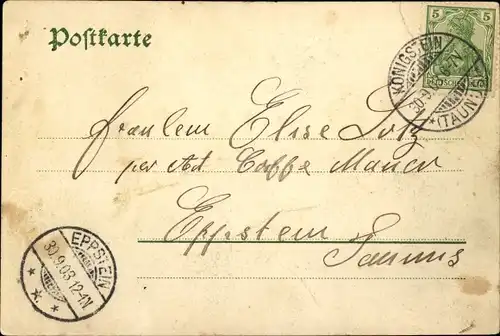 Postkarte
5 5
KÖNIGSTEIN
30.9.03
* (TAUN.)
Fräulein Elise
per Ad Caffe Mauer
Eppstein
Taunus
EPPSTEIN
30.9.03 12-1N
* * *